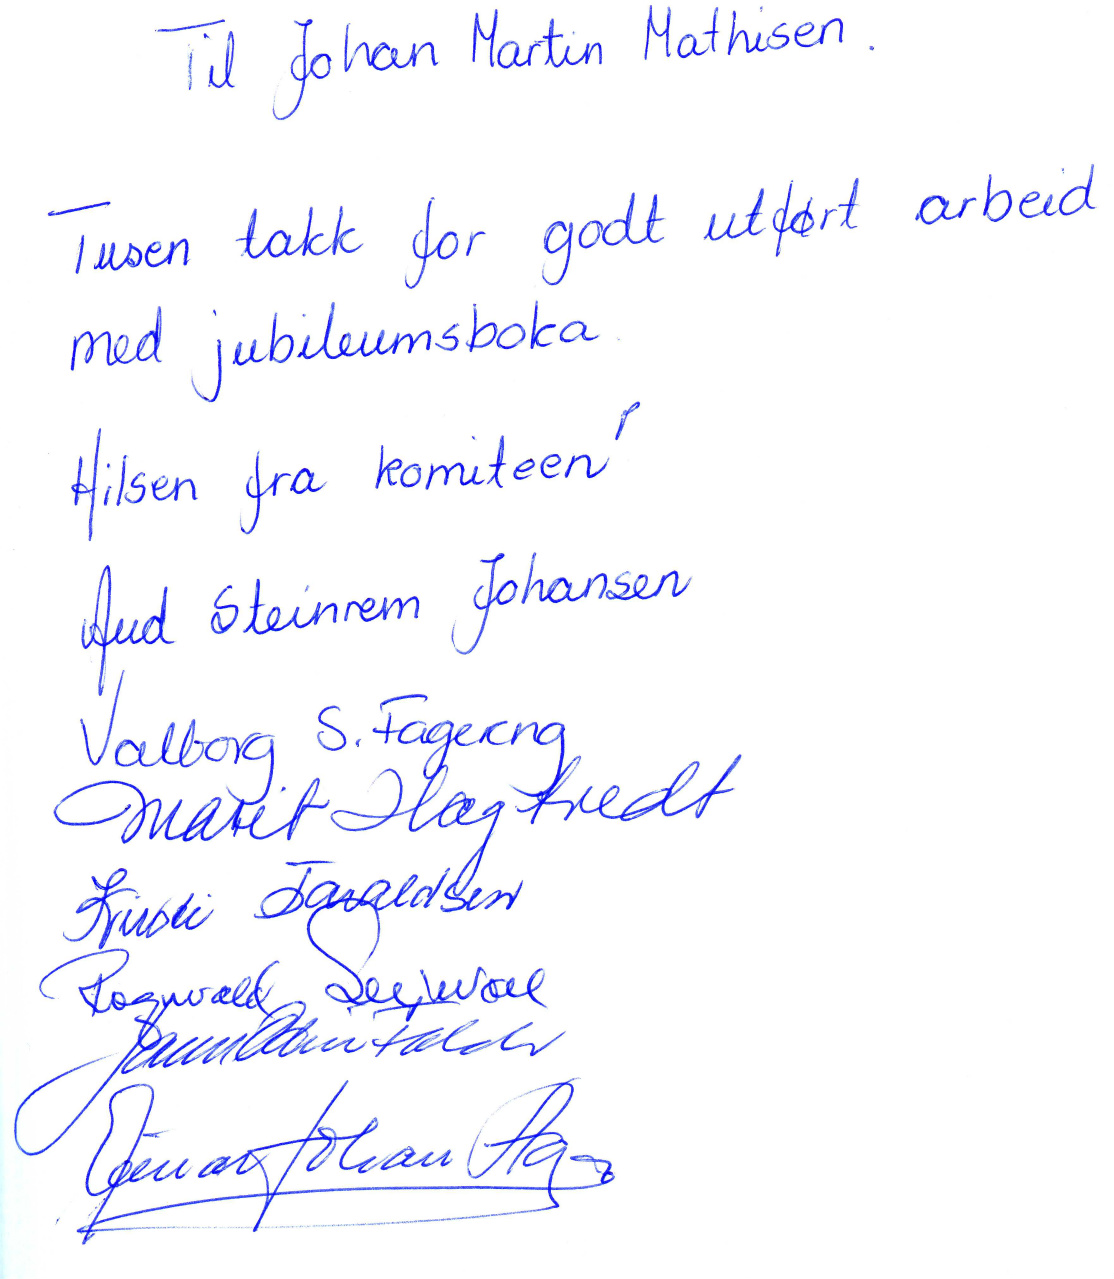 Til Johan Martin Mathisen.
Tusen takk for godt utført arbeid
med jubileumsboka.
Hilsen fra komiteen
Aud Steinrem Johansen
Valborg S. Fagereng
Marit
Kirsti Taraldsen
Rognvald
Johan